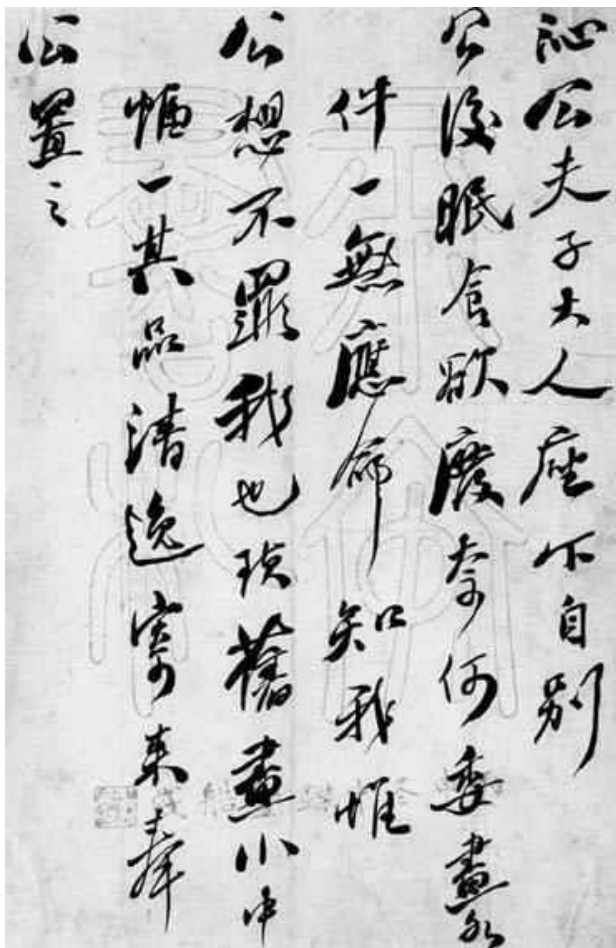 沁公夫子大人座下自别
公後眠食欲廢奈何委畫
件一無應命知我惟
公想不罪我也 舊畫小中
幅一其品清逸寄来奉
公置之